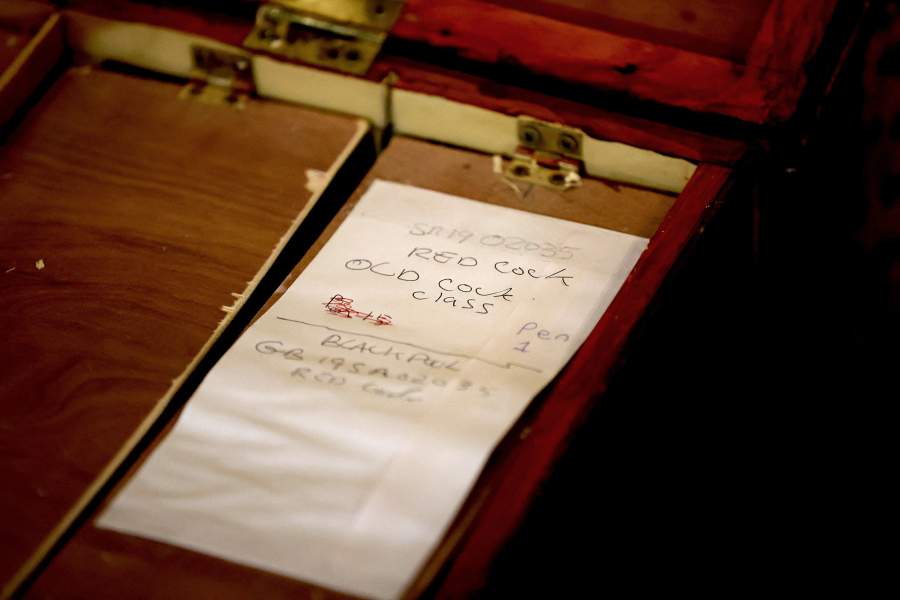 SR19 02035
RED Cock
OLD Cock
class
Pen
1
BLACKPOOL
GB 19SA02035
RED Cock